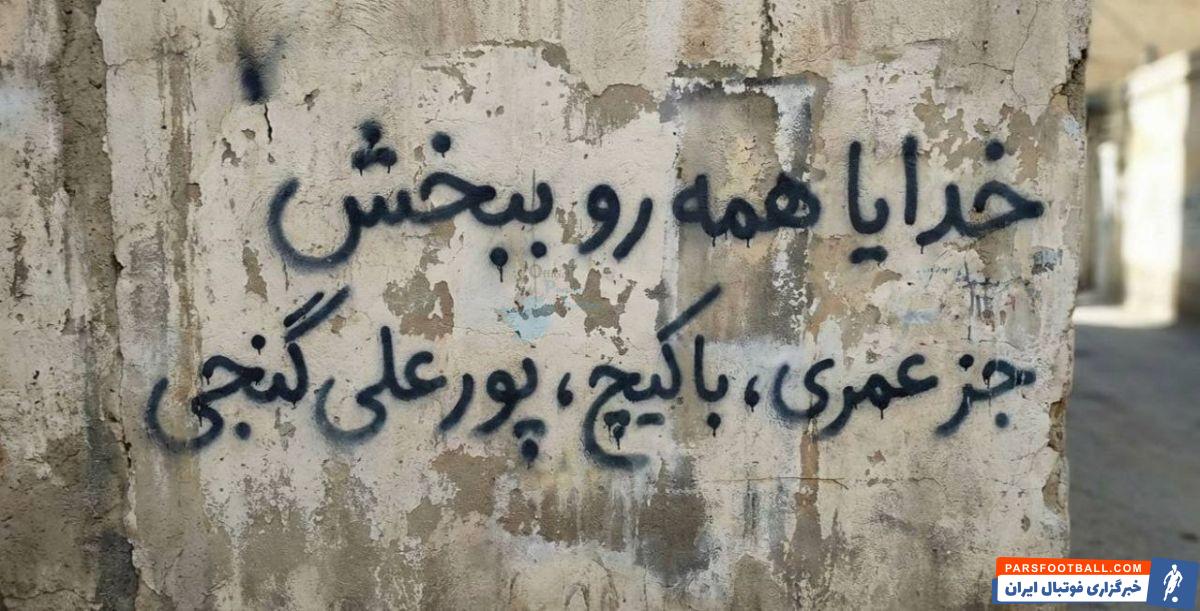 خدایا همه رو ببخش
جز عمری، باکیچ، پورعلی گنجی
PARSFOOTBALL.COM
خبرگزاری فوتبال ایران